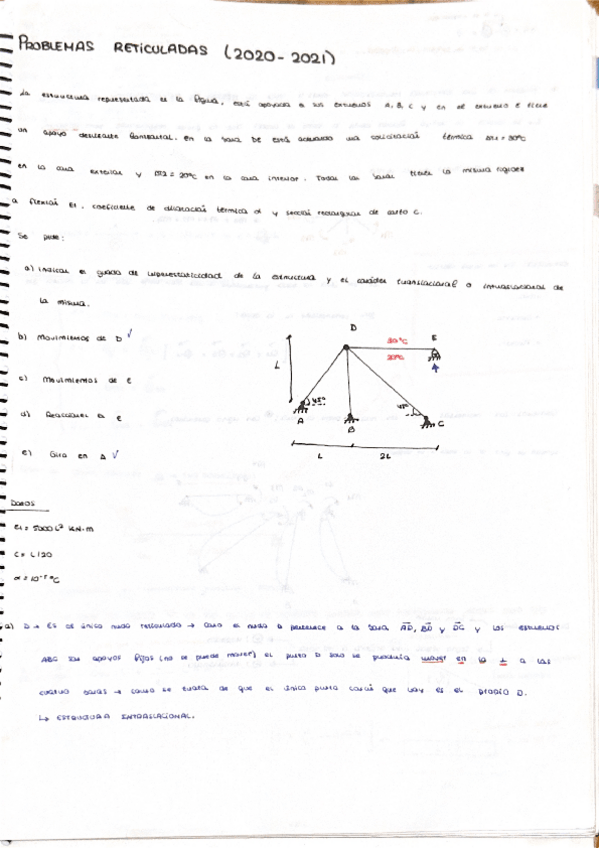 PROBLEMAS RETICULADAS (2020-2021)
La estructura representada en la figura, está apoyada en sus extremos A, B, C y en el extremo E tiene
un apoyo deslizante horizontal. En la barra DE está actuando una solicitación térmica Δt1 = 30ºC
en la cara exterior y Δt2 = 20ºC en la cara interior. Todas las barras tienen la misma rigidez
a flexión EI, coeficiente de dilatación térmica α y sección rectangular de canto C.
Se pide:
a) Indicar el grado de hiperestaticidad de la estructura y el carácter traslacional o intraslacional de
la misma.
b) Movimientos de D ✓
c) Movimientos de E
d) Reacciones en E
e) Giro en A ✓
D
30ºC
E
20ºC
L
45º
A
B
45º
C
L
2L
DATOS
EI = 5000 L² KN·m
C = L/20
α = 10⁻⁵ ºC
a) D → Es el único nudo reticulado → como el nudo D pertenece a la barra AD, BD y DC y los extremos
ABC son apoyos fijos (no se puede mover) el punto D solo se podría mover en la ⊥ a las
cuatro barras → como se trata de que el único punto común que hay es el propio D.
↳ ESTRUCTURA INTRASLACIONAL.